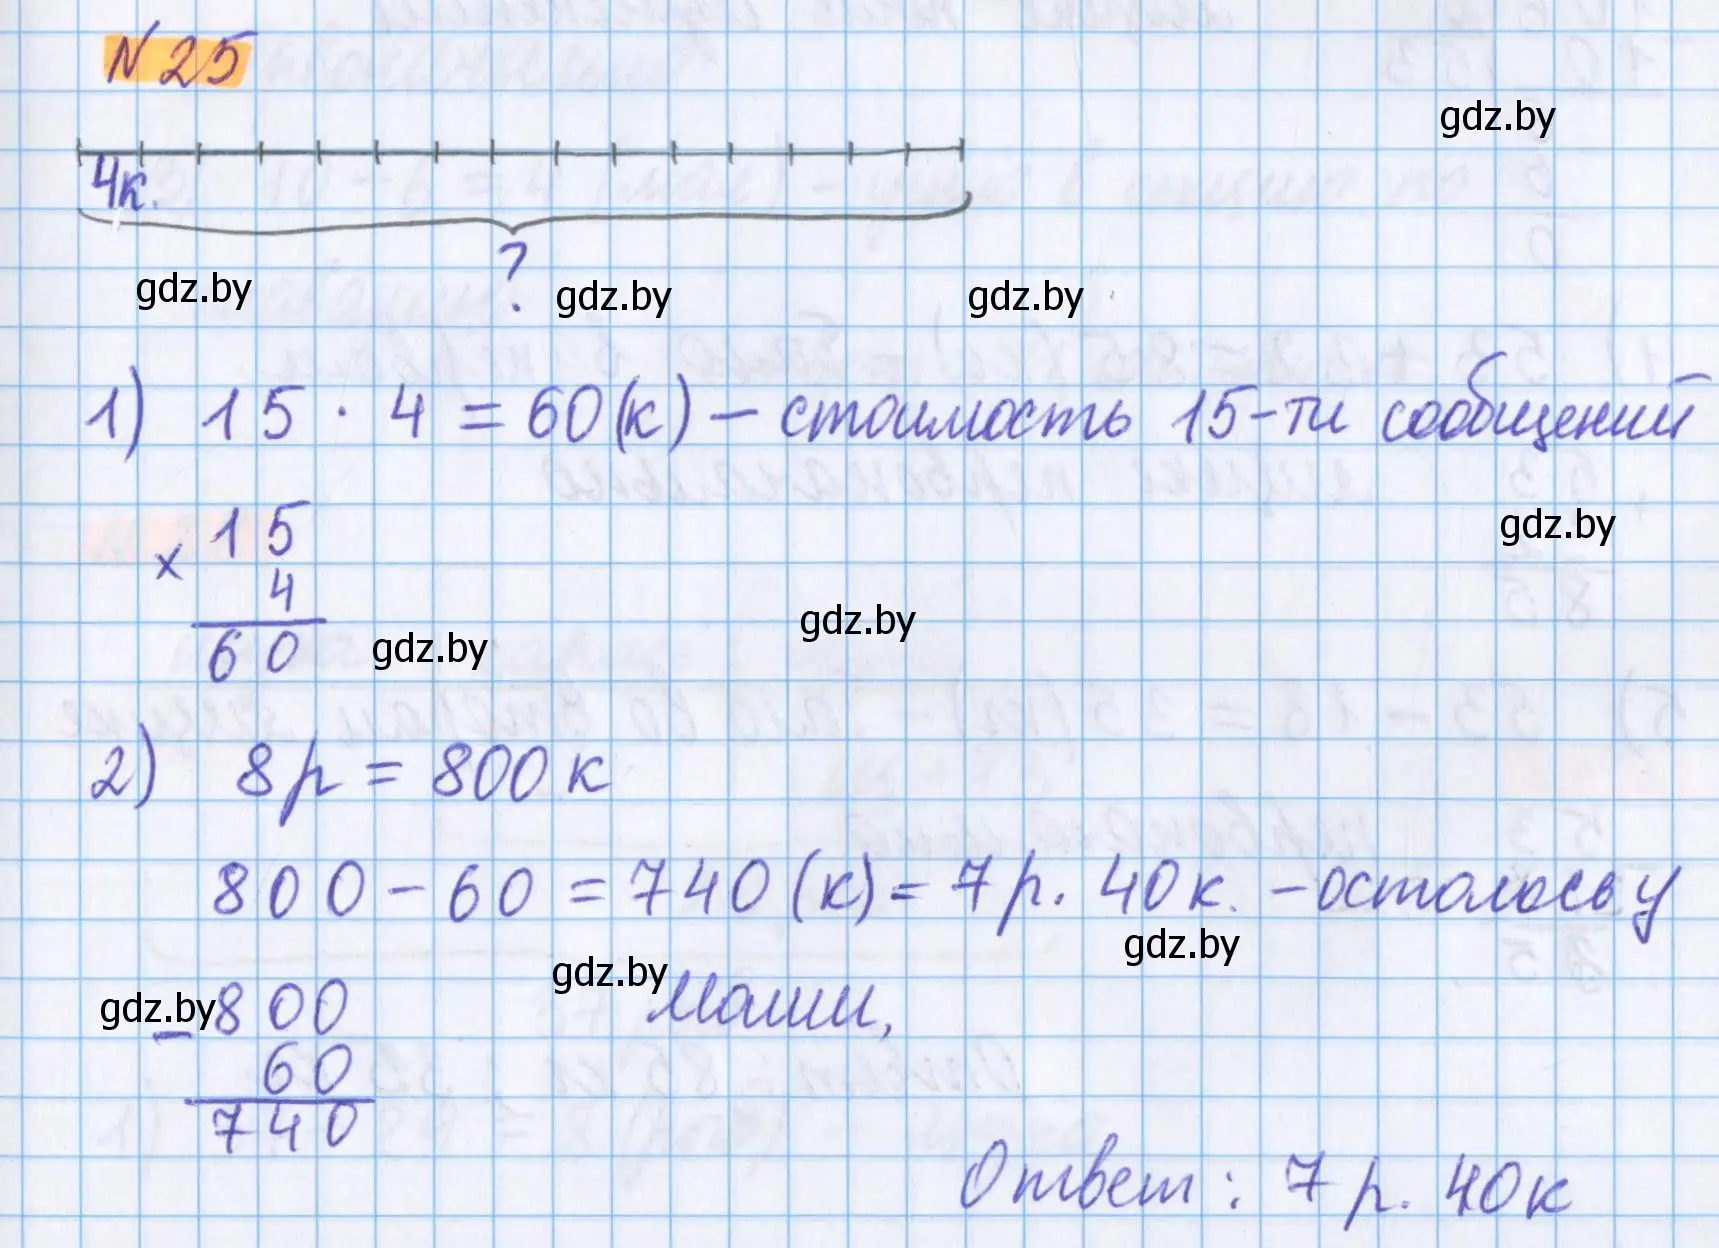 N 25
gdz.by
4к.
?
gdz.by gdz.by gdz.by
1) 15 · 4 = 60 (к) – стоимость 15-ти сообщений
× 15
4
60
gdz.by
gdz.by gdz.by
2) 8 р = 800 к
800 – 60 = 740 (к) = 7 р. 40 к. – осталось у
gdz.by
gdz.by
Маши,
gdz.by
– 800
60
740
Ответ: 7 р. 40 к